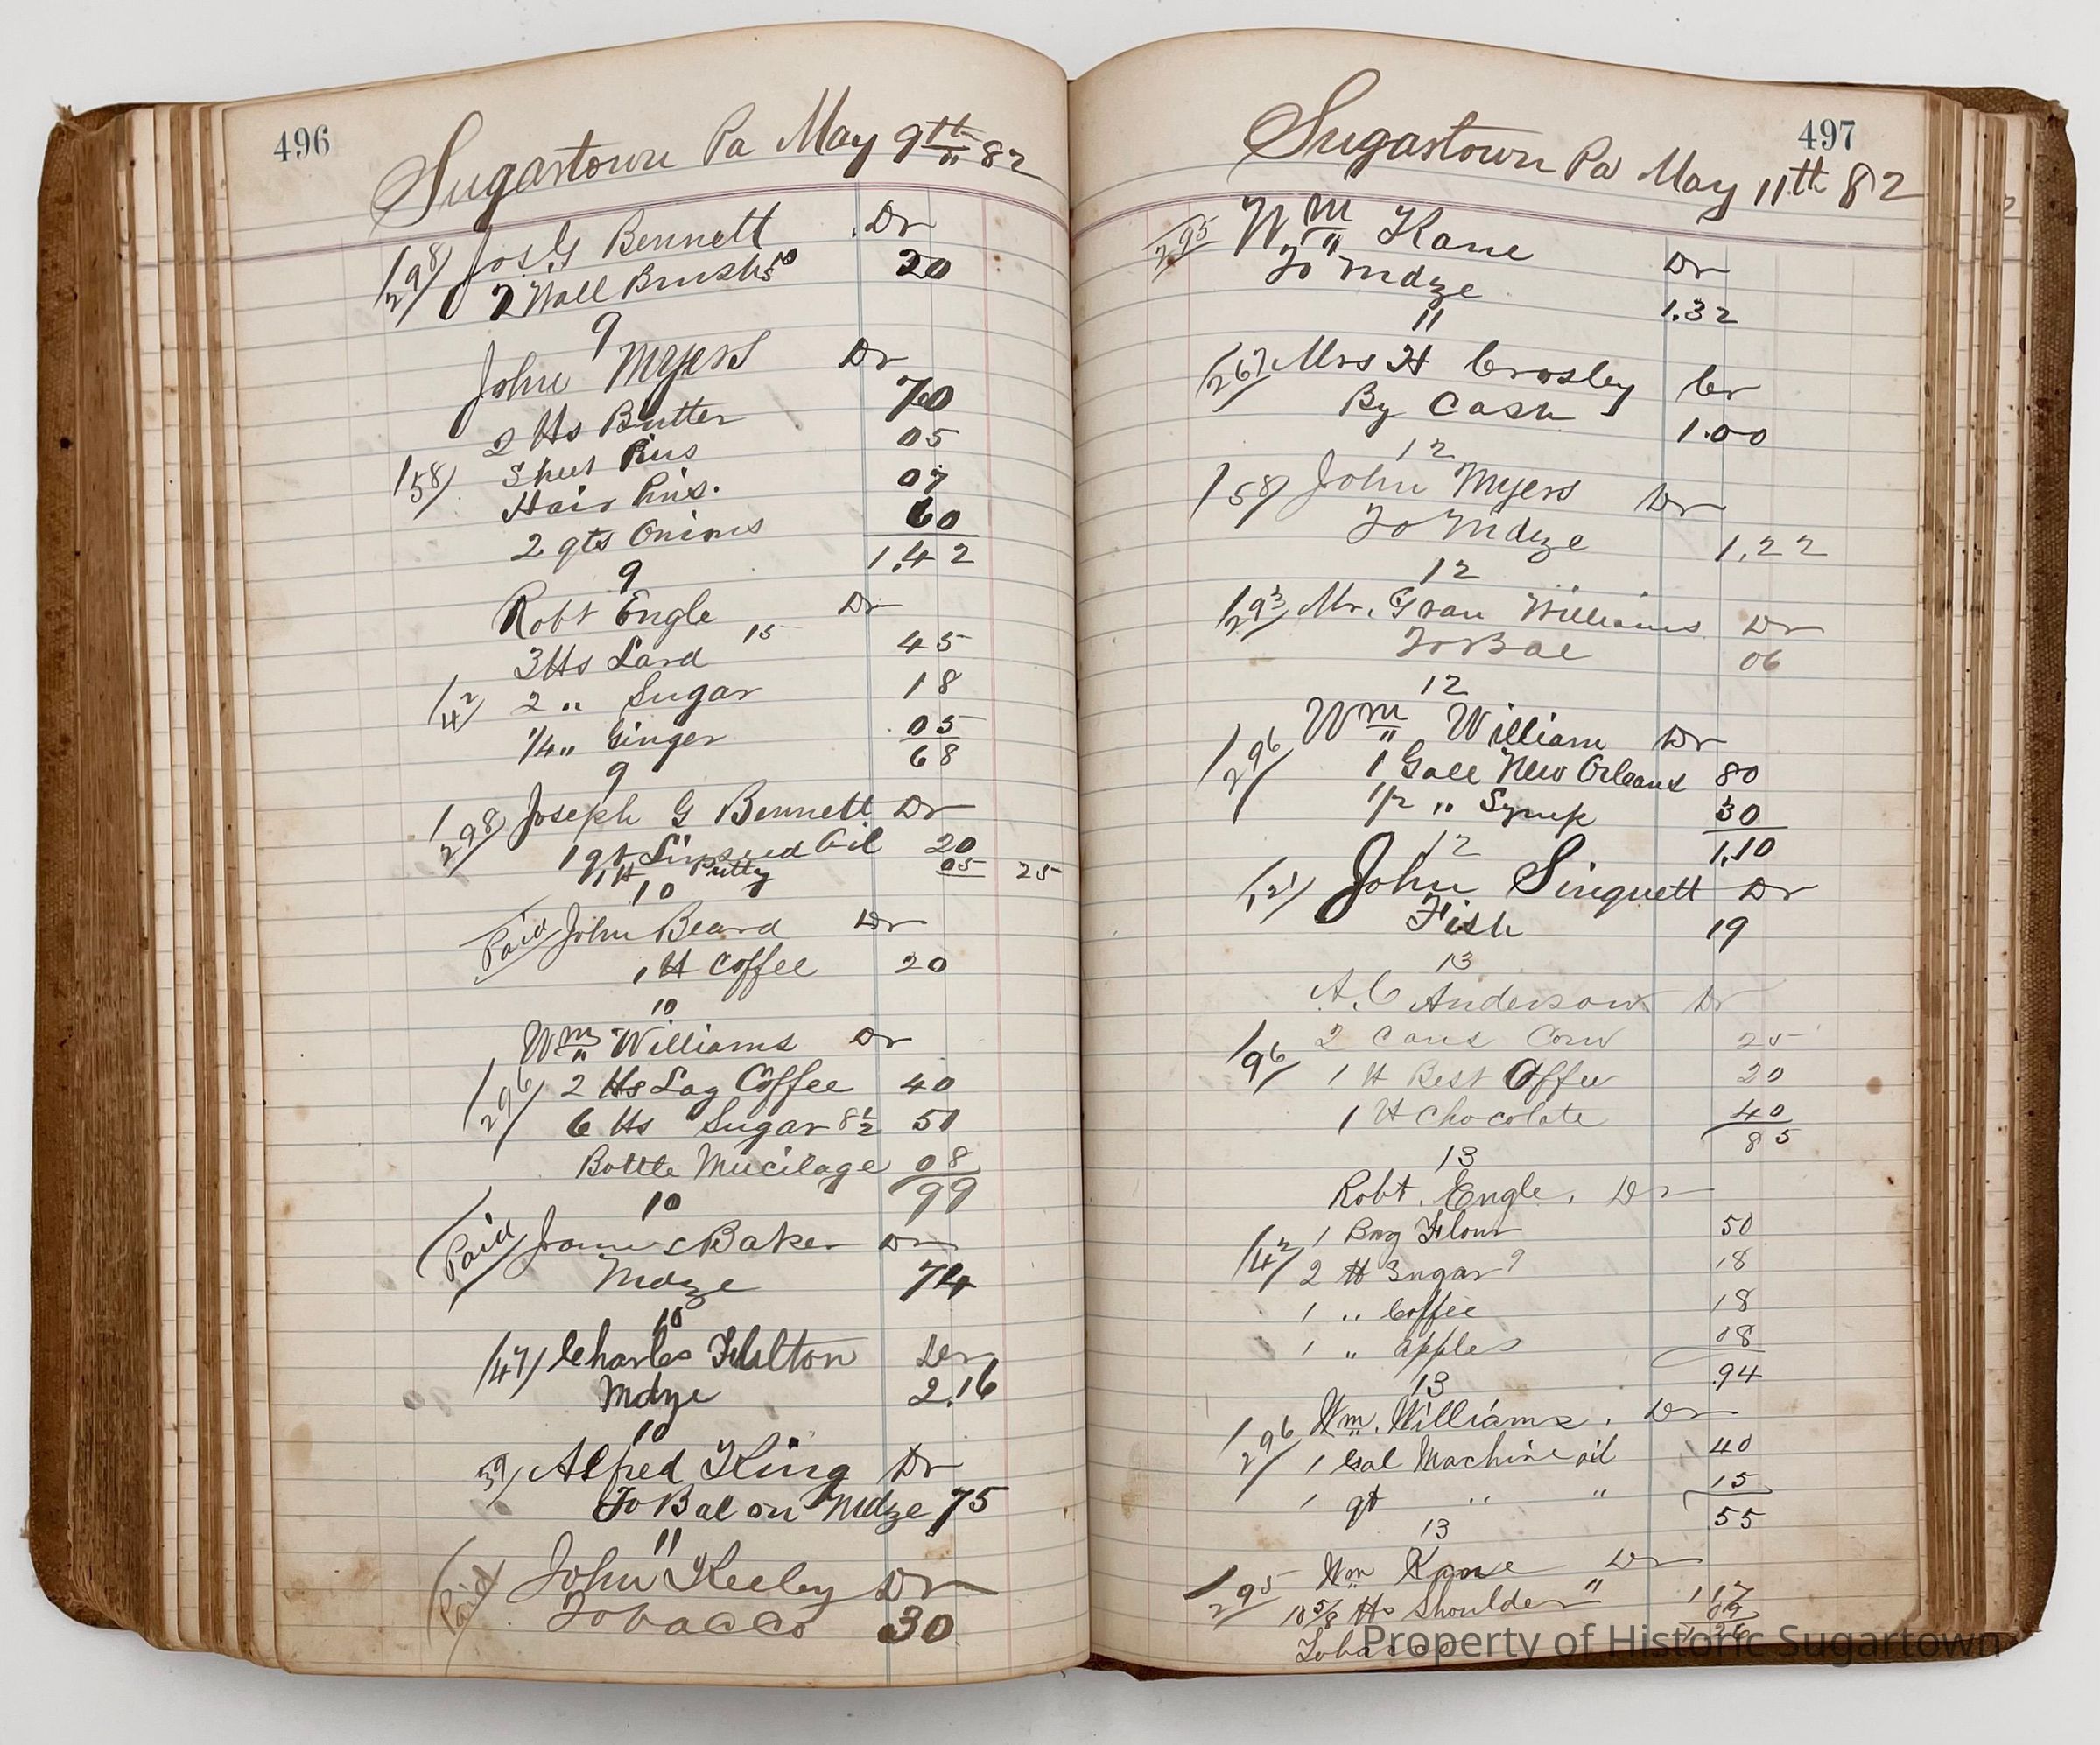 496
Sugartown Pa May 9th 82
298 Jos G Bennett Dr
2 Wall Brushs 20
9
John Myers Dr
2 lbs Butter 70
Sheet Pins 05
158 Hair Pins. 07
2 qts Onions 60
1.42
9
Robt Engle Dr
3 lbs Lard 15 45
42 2 " Sugar 18
1/4 " Ginger 05
68
9
298 Joseph G Bennett Dr
1 qt Linseed Oil 20
1 lb Putty 05 25
10
Paid John Beard Dr
1 lb Coffee 20
10
Wm Williams Dr
296 2 lbs Lag Coffee 40
6 lbs Sugar 8 1/2 51
Bottle Mucilage 08
99
10
Paid James Baker Dr
Mdze 74
10
147 Charles Fulton Dr
Mdze 2.16
10
39 Alfred King Dr
To Bal on Mdze 75
11
Paid John Keeley Dr
Tobacco 30
497
Sugartown Pa May 11th 82
295 Wm Kane Dr
To Mdze 1.32
11
267 Mrs H Crosley Cr
By Cash 1.00
12
158 John Myers Dr
To Mdze 1.22
12
293 Mr. Williams Dr
To Bal 06
12
Wm William Dr
296 1 Gall New Orleans 80
1/2 " Syrup 30
1.10
12
121 John Singuett Dr
Fish 19
13
A. C Anderson Dr
2 Cans Corn 25
196 1 lb Best Coffee 20
1 lb Chocolate 40
85
13
Robt. Engle. Dr
1 Bag Flour 50
42 2 lb Sugar 9 18
1 " Coffee 18
1 " apples 08
.94
13
296 Wm. Williams. Dr
1 Gal Machine oil 40
1 qt " " 15
55
13
295 Wm Kane Dr
10 5/8 lbs Shoulder " 1 17
Tobacco 09
1 26
Property of Historic Sugartown